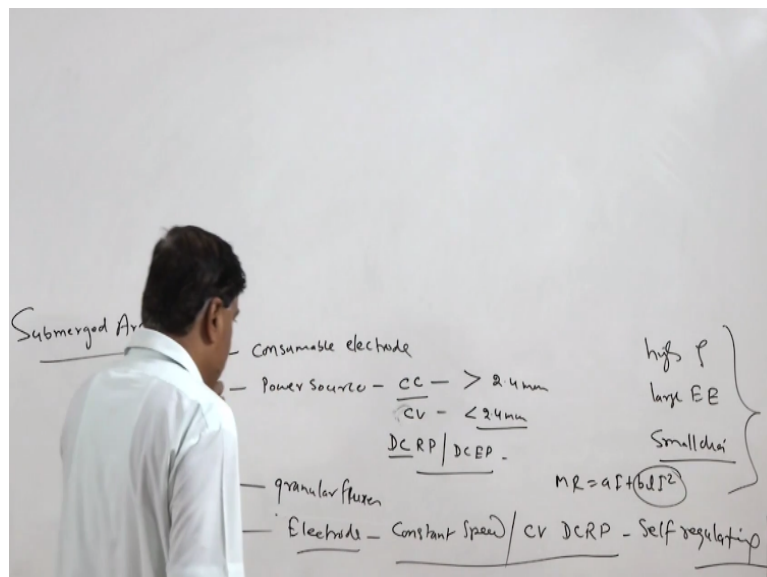 Submerged Ar
- Consumable electrode
- Power Source - CC - > 2.4mm
CV - < 2.4mm
DCRP / DCEP -
- granular fluxes
- Electrode - Constant Speed / CV DCRP - Self regulating
high ρ
large EE
Small dia
MR = aI + blI²